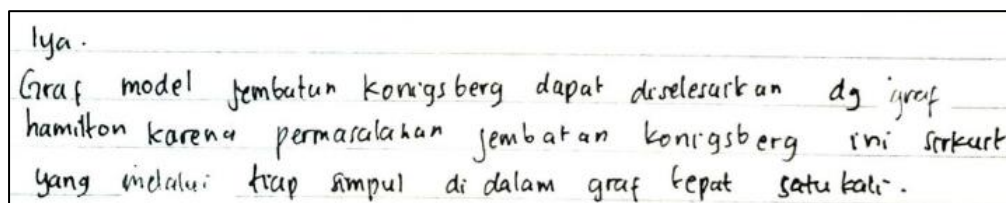 Iya.
Graf model jembatan konigsberg dapat diselesaikan dg graf
hamilton karena permasalahan jembatan konigsberg ini sirkuit
yang melalui tiap simpul di dalam graf tepat satu kali.